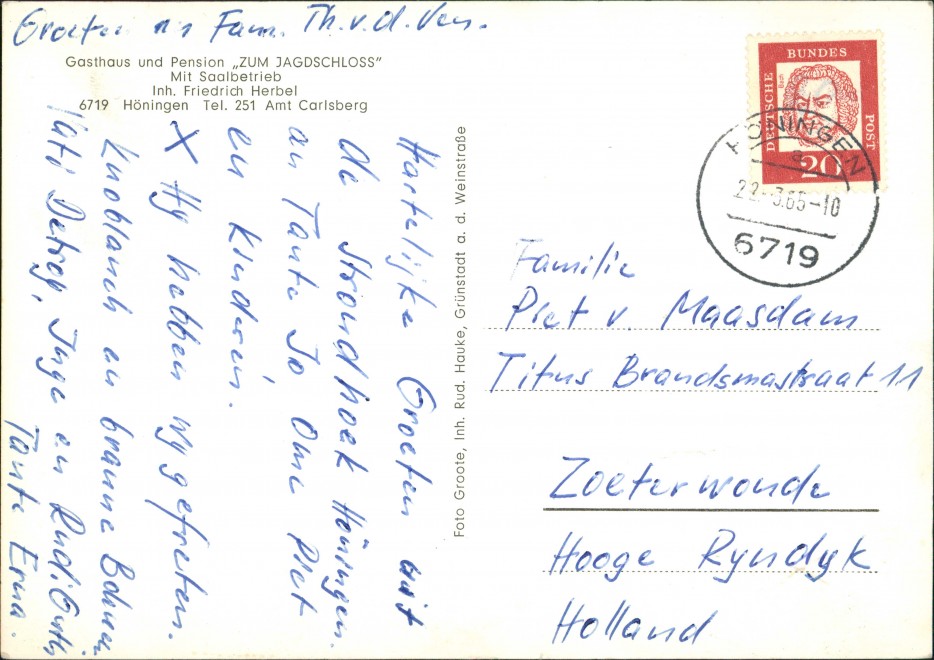 Groeten an Fam. Th. v. d. Ven.
Gasthaus und Pension „ZUM JAGDSCHLOSS"
Mit Saalbetrieb
Inh. Friedrich Herbel
6719 Höningen Tel. 251 Amt Carlsberg
Hartelijke Groeten uit
de Stroudhoek Höningen.
an Tante Jo Ome Piet
en Kinderen.
X Hy hebben wy gefreten.
Knoblauch en braune Bohnen
Vati, Detlef, Inge en Rudi
Tante Erna.
Foto Groote, Inh. Rud. Hauke, Grünstadt a. d. Weinstraße
DEUTSCHE BUNDES POST
Bach
20
HÖNINGEN
a
22.-3.65-10
6719
Familie
Piet v. Maasdam
Titus Brandsmastraat 11
Zoeterwoude
Hooge Ryndyk
Holland